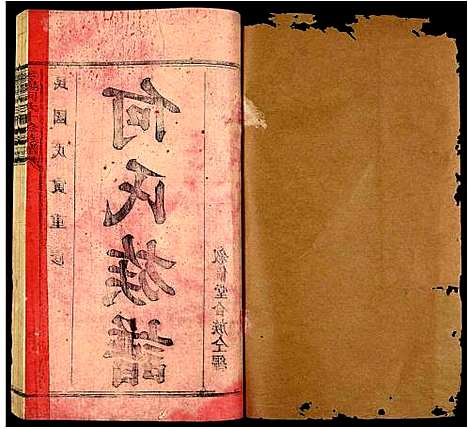 民國戊寅重修
何氏族譜
堂合族仝編